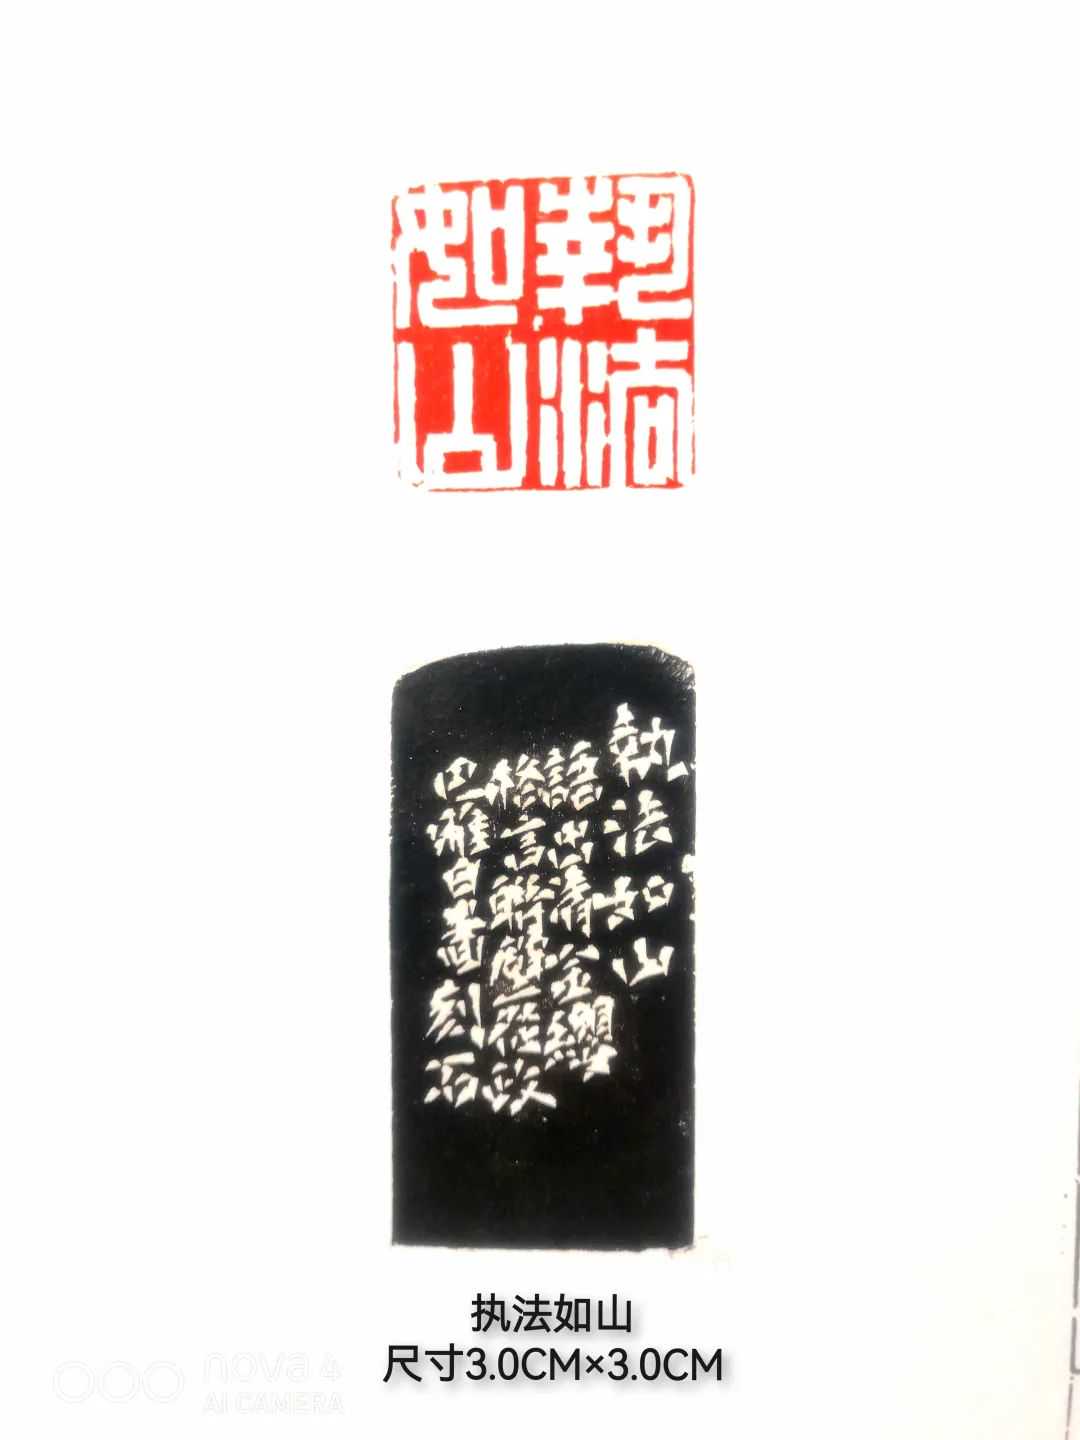 執法
如山
執法如山
語出清金纓
格言聯璧從政
白刻石
执法如山
尺寸3.0CM×3.0CM
nova 4
AI CAMERA